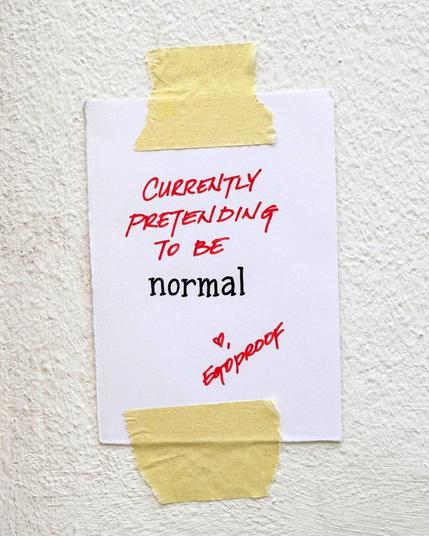 CURRENTLY
PRETENDING
TO BE
normal
♥,
EGOPROOF